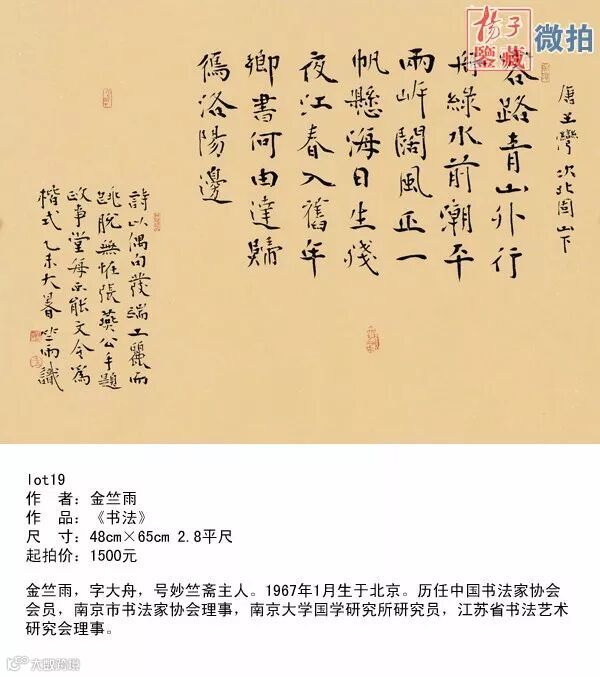 揚子
鑒藏
微拍
唐王灣次北固山下
客路青山外行
舟綠水前潮平
兩岸闊風正一
帆懸海日生殘
夜江春入舊年
鄉書何由達歸
鴈洛陽邊
詩以偶句發端工麗而
跳脫無怪張燕公手題
政事堂每示能文令為
楷式乙未大暑竺雨識
lot19
作 者：金竺雨
作 品：《书法》
尺 寸：48cm×65cm 2.8平尺
起拍价：1500元
金竺雨，字大舟，号妙竺斋主人。1967年1月生于北京。历任中国书法家协会
会员，南京市书法家协会理事，南京大学国学研究所研究员，江苏省书法艺术
研究会理事。